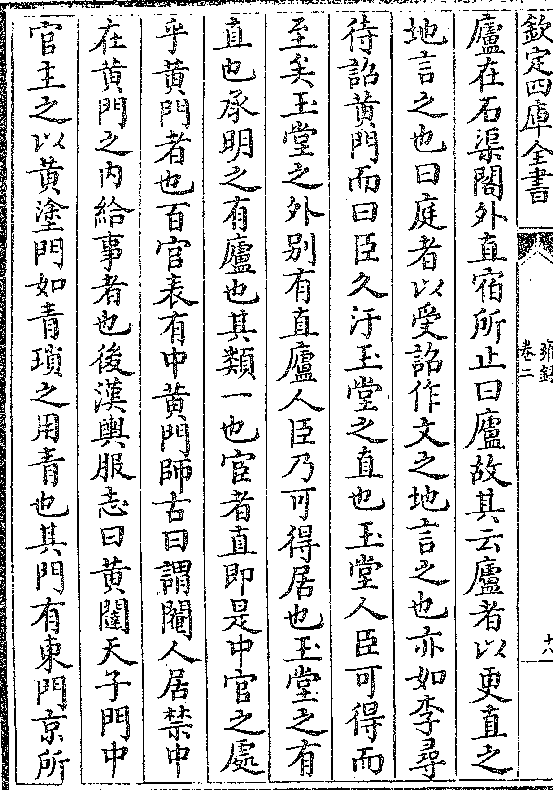 欽定四庫全書
雍録
卷二
十八
廬在石渠閣外直宿所止曰廬故其云廬者以更直之
地言之也曰庭者以受詔作文之地言之也亦如李尋
待詔黄門而曰臣久汙玉堂之直也玉堂人臣可得而
至矣玉堂之外別有直廬人臣乃可得居也玉堂之有
直也承明之有廬也其類一也宦者直即是中官之處
乎黄門者也百官表有中黄門師古曰謂閹人居禁中
在黄門之内給事者也後漢輿服志曰黄闥天子門中
官主之以黄塗門如青瑣之用青也其門有東門京所